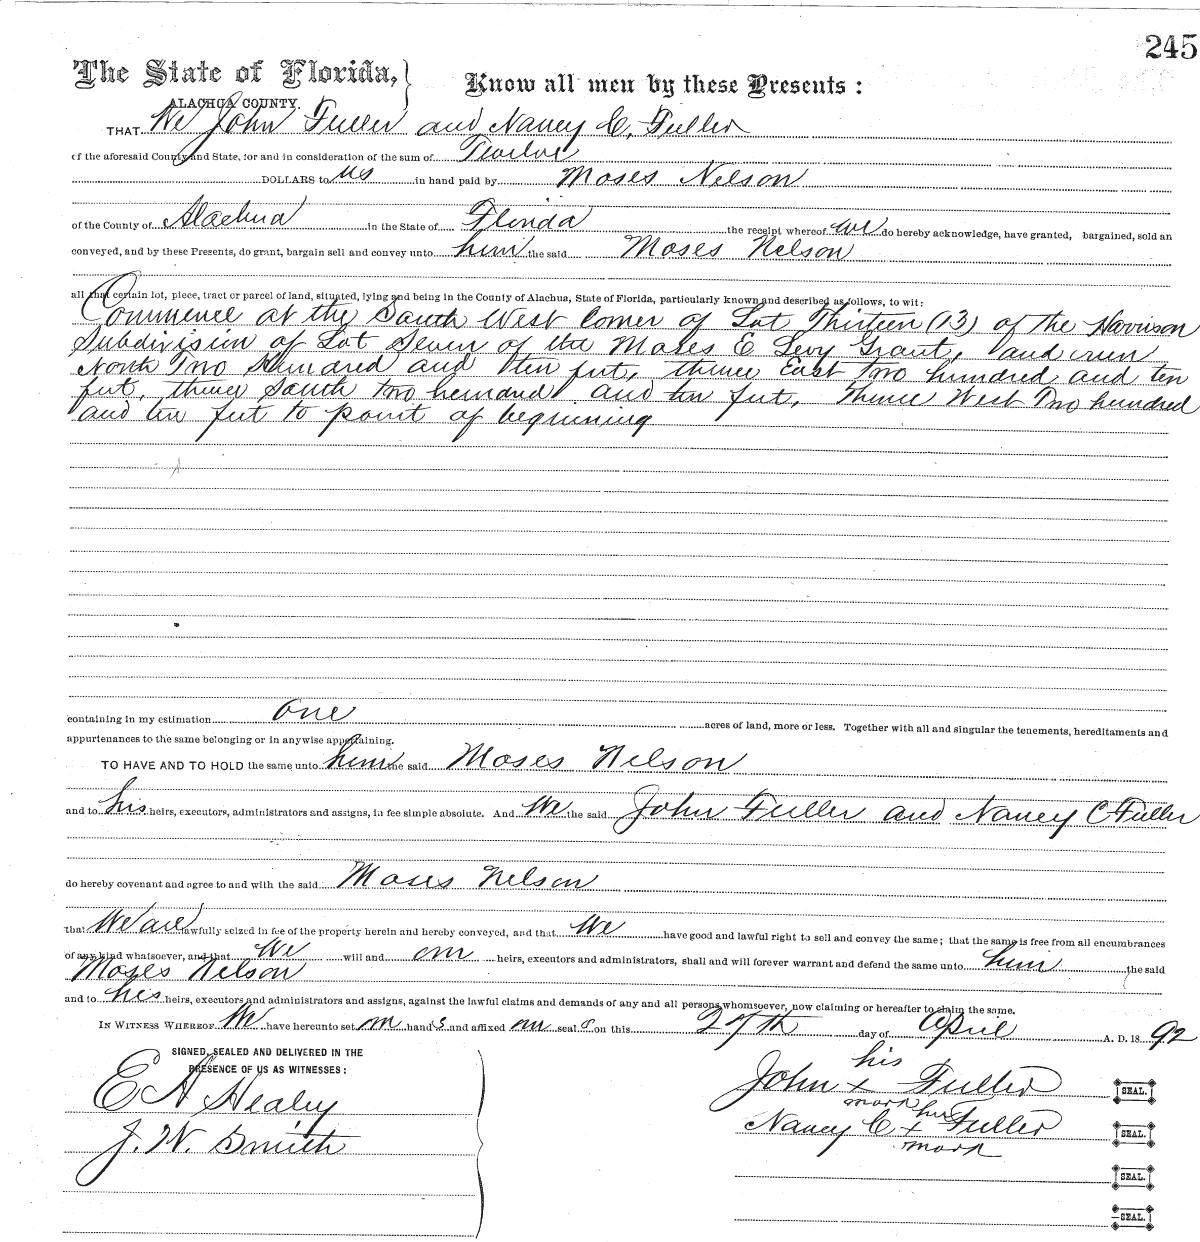 245
The State of Florida, } Know all men by these Presents :
ALACHUA COUNTY.
THAT We John Fuller and Nancy C. Fuller
of the aforesaid County and State, for and in consideration of the sum of Twelve
DOLLARS to us in hand paid by Moses Nelson
of the County of Alachua in the State of Florida the receipt whereof we do hereby acknowledge, have granted, bargained, sold an
conveyed, and by these Presents, do grant, bargain sell and convey unto him the said Moses Nelson
all that certain lot, piece, tract or parcel of land, situated, lying and being in the County of Alachua, State of Florida, particularly known and described as follows, to wit:
Commence at the South West Corner of Lot Thirteen (13) of the Harrison
Subdivision of Lot Seven of the Moses E Levy Grant, and run
North Two Hundred and ten feet, thence East Two hundred and ten
feet, thence South two hundred and ten feet, Thence West Two hundred
and ten feet to point of beginning
containing in my estimation One acres of land, more or less. Together with all and singular the tenements, hereditaments and
appurtenances to the same belonging or in anywise appertaining.
TO HAVE AND TO HOLD the same unto him the said Moses Nelson
and to his heirs, executors, administrators and assigns, in fee simple absolute. And We the said John Fuller and Nancy C Fuller
do hereby covenant and agree to and with the said Moses Nelson
that We are lawfully seized in fee of the property herein and hereby conveyed, and that We have good and lawful right to sell and convey the same; that the same is free from all encumbrances
of any kind whatsoever, and that We will and our heirs, executors and administrators, shall and will forever warrant and defend the same unto him the said
Moses Nelson
and to his heirs, executors and administrators and assigns, against the lawful claims and demands of any and all persons whomsoever, now claiming or hereafter to claim the same.
IN WITNESS WHEREOF We have hereunto set our hands and affixed our seals on this 27th day of April A. D. 18 92
SIGNED, SEALED AND DELIVERED IN THE
PRESENCE OF US AS WITNESSES:
E A Healey
J. W. Smith
his
John x Fuller SEAL.
mark her
Nancy C. x Fuller SEAL.
mark
SEAL.
SEAL.